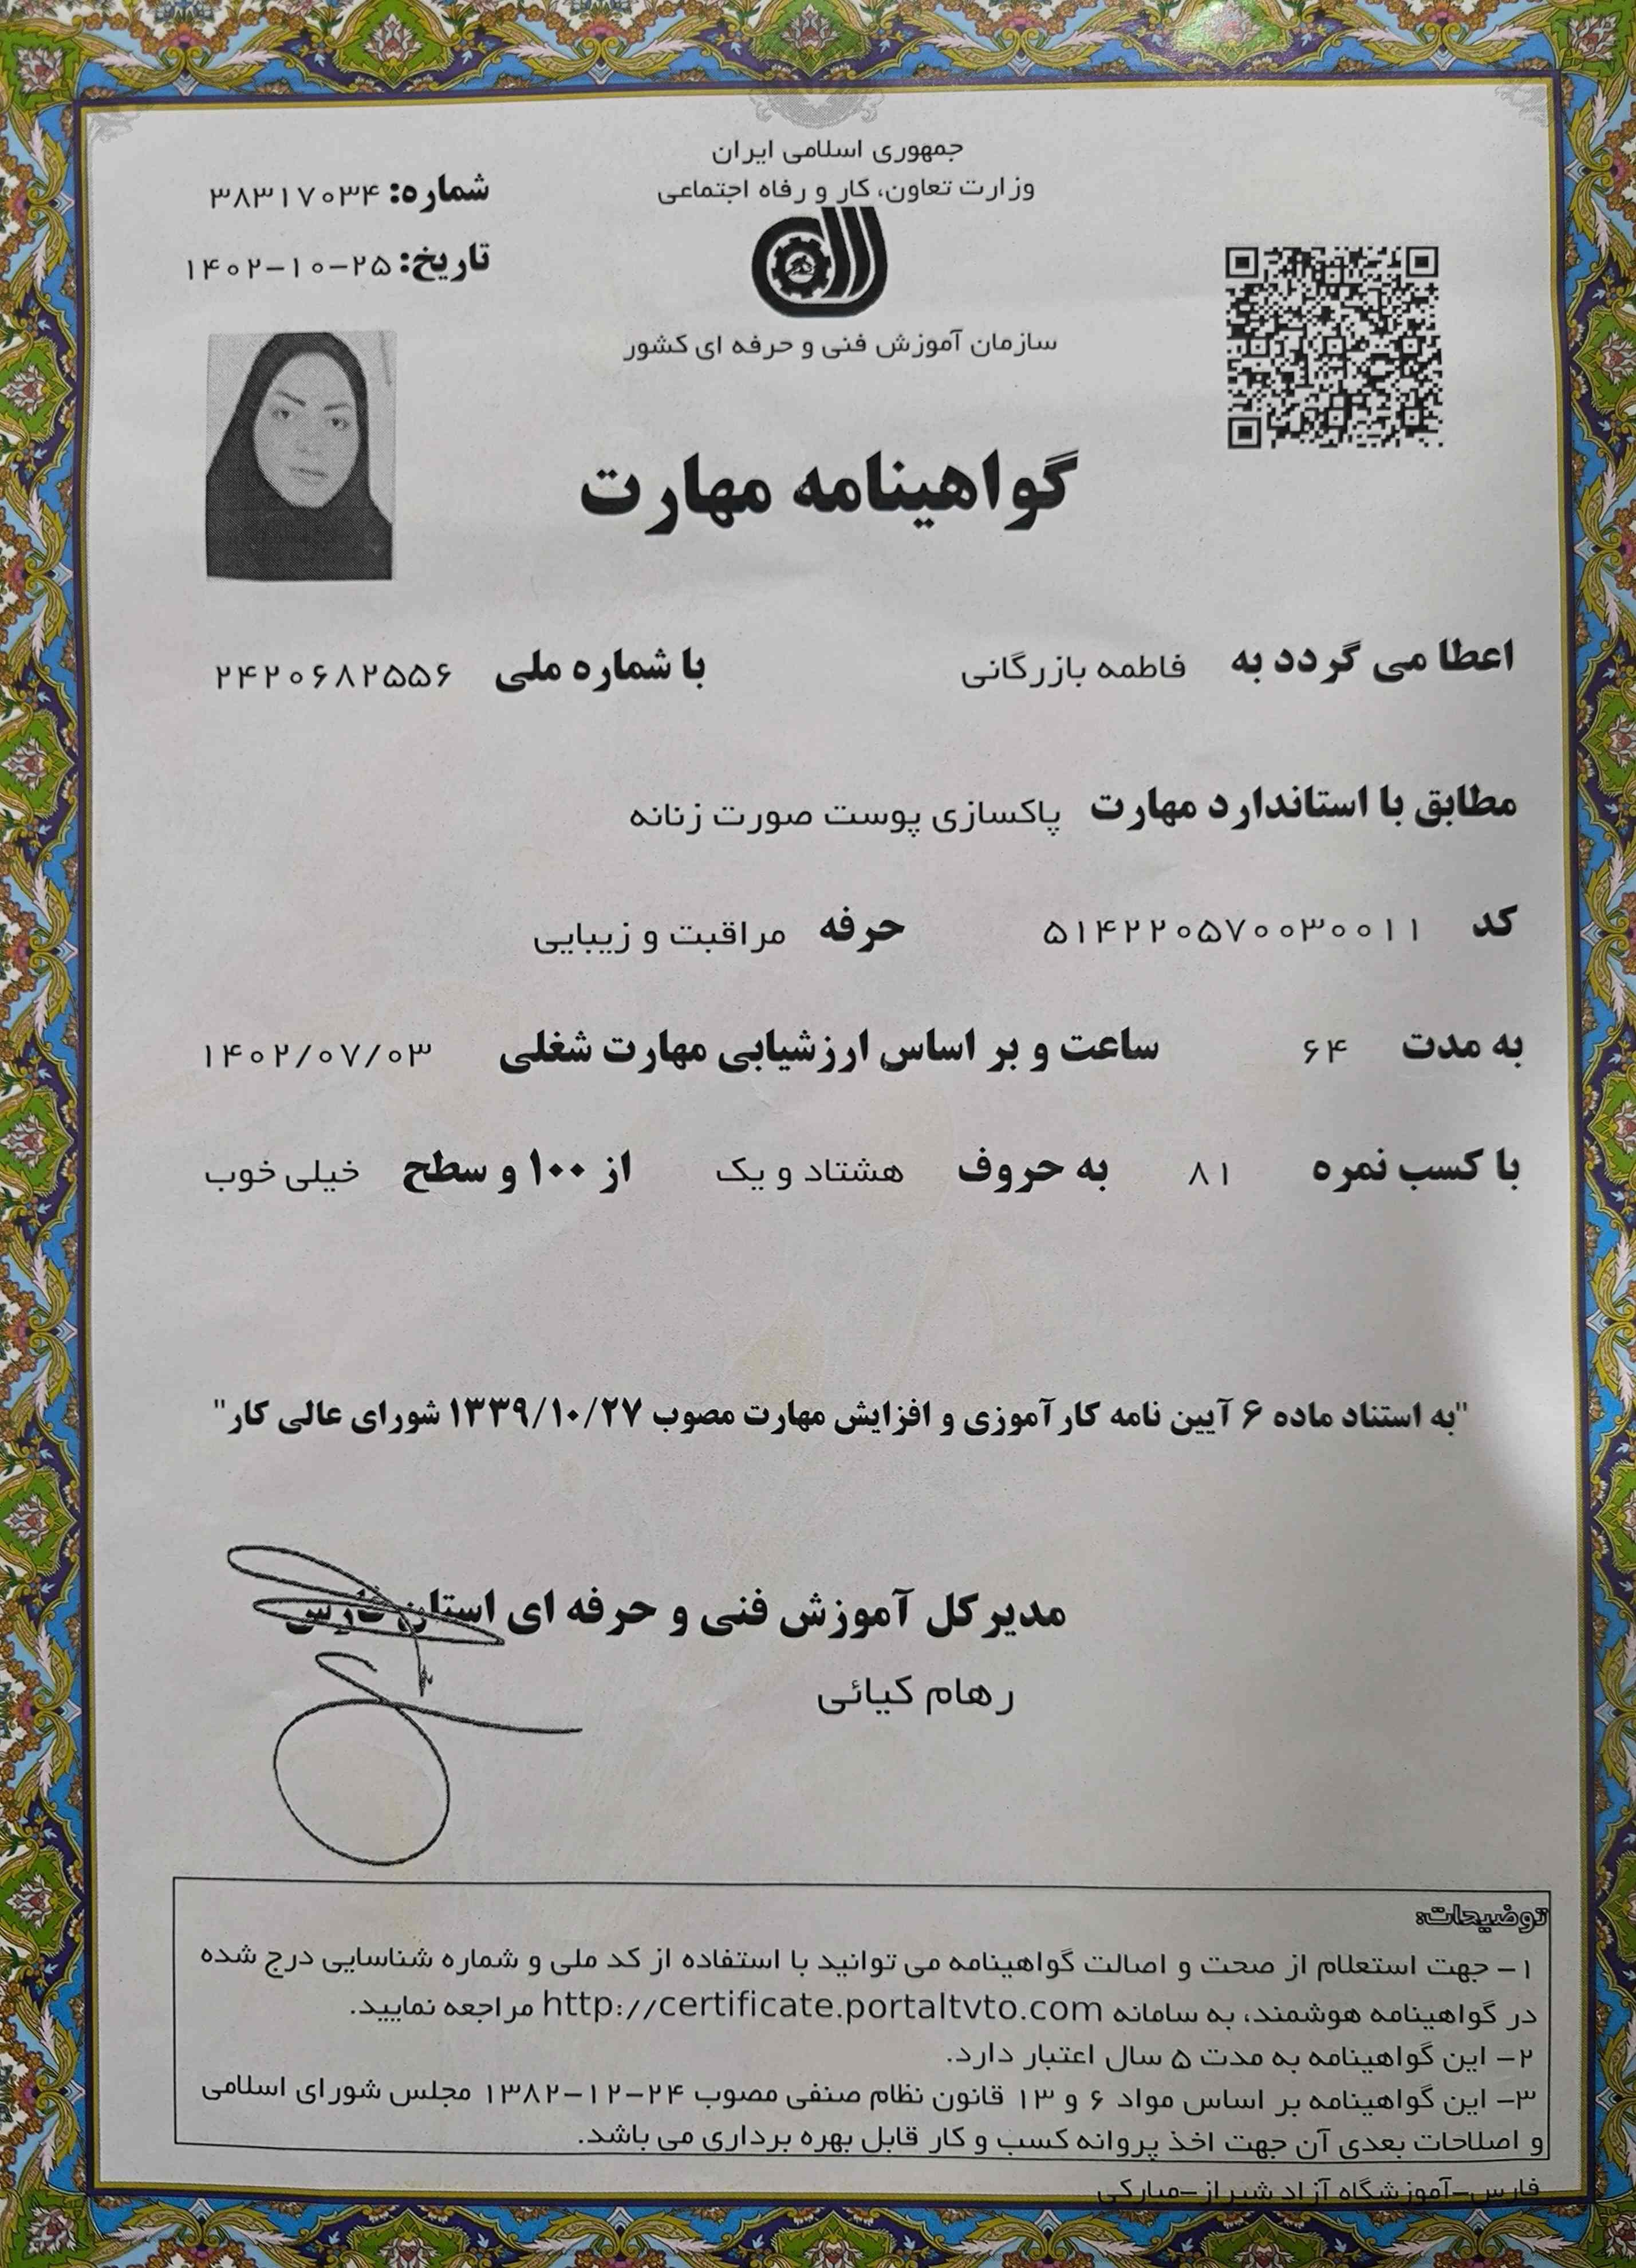 جمهوری اسلامی ایران
وزارت تعاون، کار و رفاه اجتماعی
شماره: ۳۸۳۱۷۰۳۴
تاریخ: ۱۴۰۲-۱۰-۲۵
سازمان آموزش فنی و حرفه ای کشور
گواهینامه مهارت
اعطا می گردد به فاطمه بازرگانی با شماره ملی ۲۴۲۰۶۸۲۵۵۶
مطابق با استاندارد مهارت پاکسازی پوست صورت زنانه
کد ۵۱۴۲۲۰۵۷۰۰۳۰۰۱۱ حرفه مراقبت و زیبایی
به مدت ۶۴ ساعت و بر اساس ارزشیابی مهارت شغلی ۱۴۰۲/۰۷/۰۳
با کسب نمره ۸۱ به حروف هشتاد و یک از ۱۰۰ و سطح خیلی خوب
"به استناد ماده ۶ آیین نامه کارآموزی و افزایش مهارت مصوب ۱۳۳۹/۱۰/۲۷ شورای عالی کار"
مدیرکل آموزش فنی و حرفه ای استان فارس
رهام کیائی
توضیحات:
۱- جهت استعلام از صحت و اصالت گواهینامه می توانید با استفاده از کد ملی و شماره شناسایی درج شده
در گواهینامه هوشمند، به سامانه http://certificate.portaltvto.com مراجعه نمایید.
۲- این گواهینامه به مدت ۵ سال اعتبار دارد.
۳- این گواهینامه بر اساس مواد ۶ و ۱۳ قانون نظام صنفی مصوب ۲۴-۱۲-۱۳۸۲ مجلس شورای اسلامی
و اصلاحات بعدی آن جهت اخذ پروانه کسب و کار قابل بهره برداری می باشد.
فارس-آموزشگاه آزاد شیراز-مبارکی